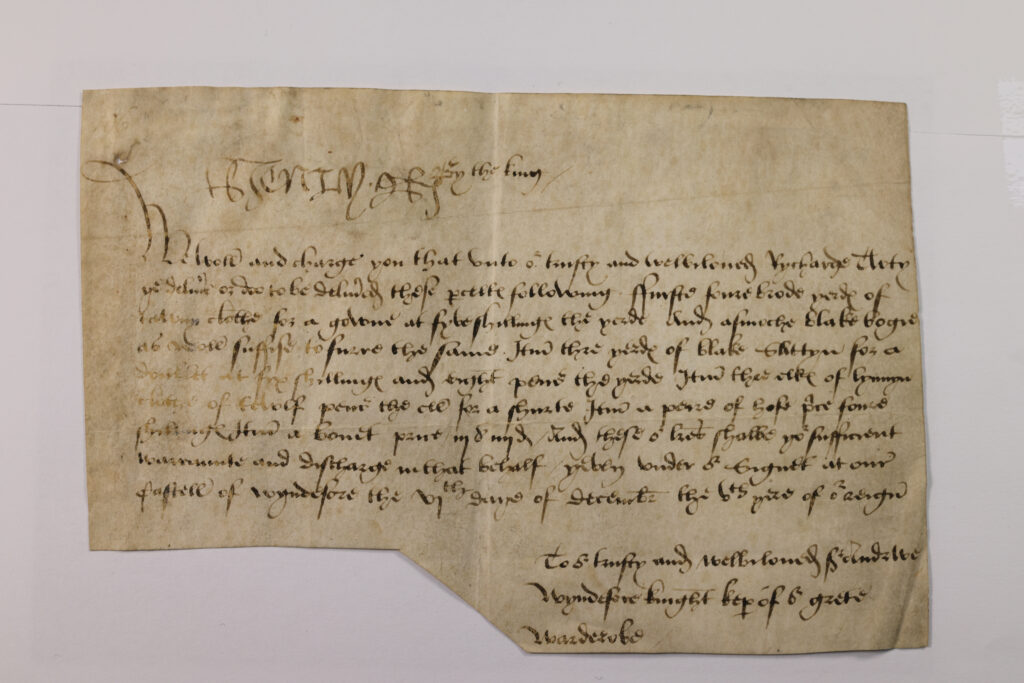 HENRY R By the king
We woll and charge you that unto oʳ trusty and welbiloued Rycharde
ye delivʳ or doo to be deliuʳed these ꝑcellꝭ following ffurste foure brode yerdꝭ of
tawny clothe for a gowne at fyve shillingꝭ the yerde And asmoche blake bogie
as woll suffise to furre the same Itm̃ thre yerdꝭ of blake Sattyn for a
doublet at syx shillingꝭ and eight pene the yerde Itm̃ thre elles of lynnyn
clothe of twolf pene the ell for a shurte Itm̃ a peire of hose p̃ce foure
shillingꝭ Itm̃ a bonet price iijs iiijd And these oʳ lrẽs shalbe yoʳ sufficient
warraunte and discharge in that behalf yeven under oʳ Signet at our
Castell of Wyndesore the vjᵗʰ daye of Decembrˀ the vᵗʰ yere of oʳ reign
To oʳ trusty and welbiloued Sʳ Andrewe
Wyndesore knight keꝑ of oʳ grete
Warderobe